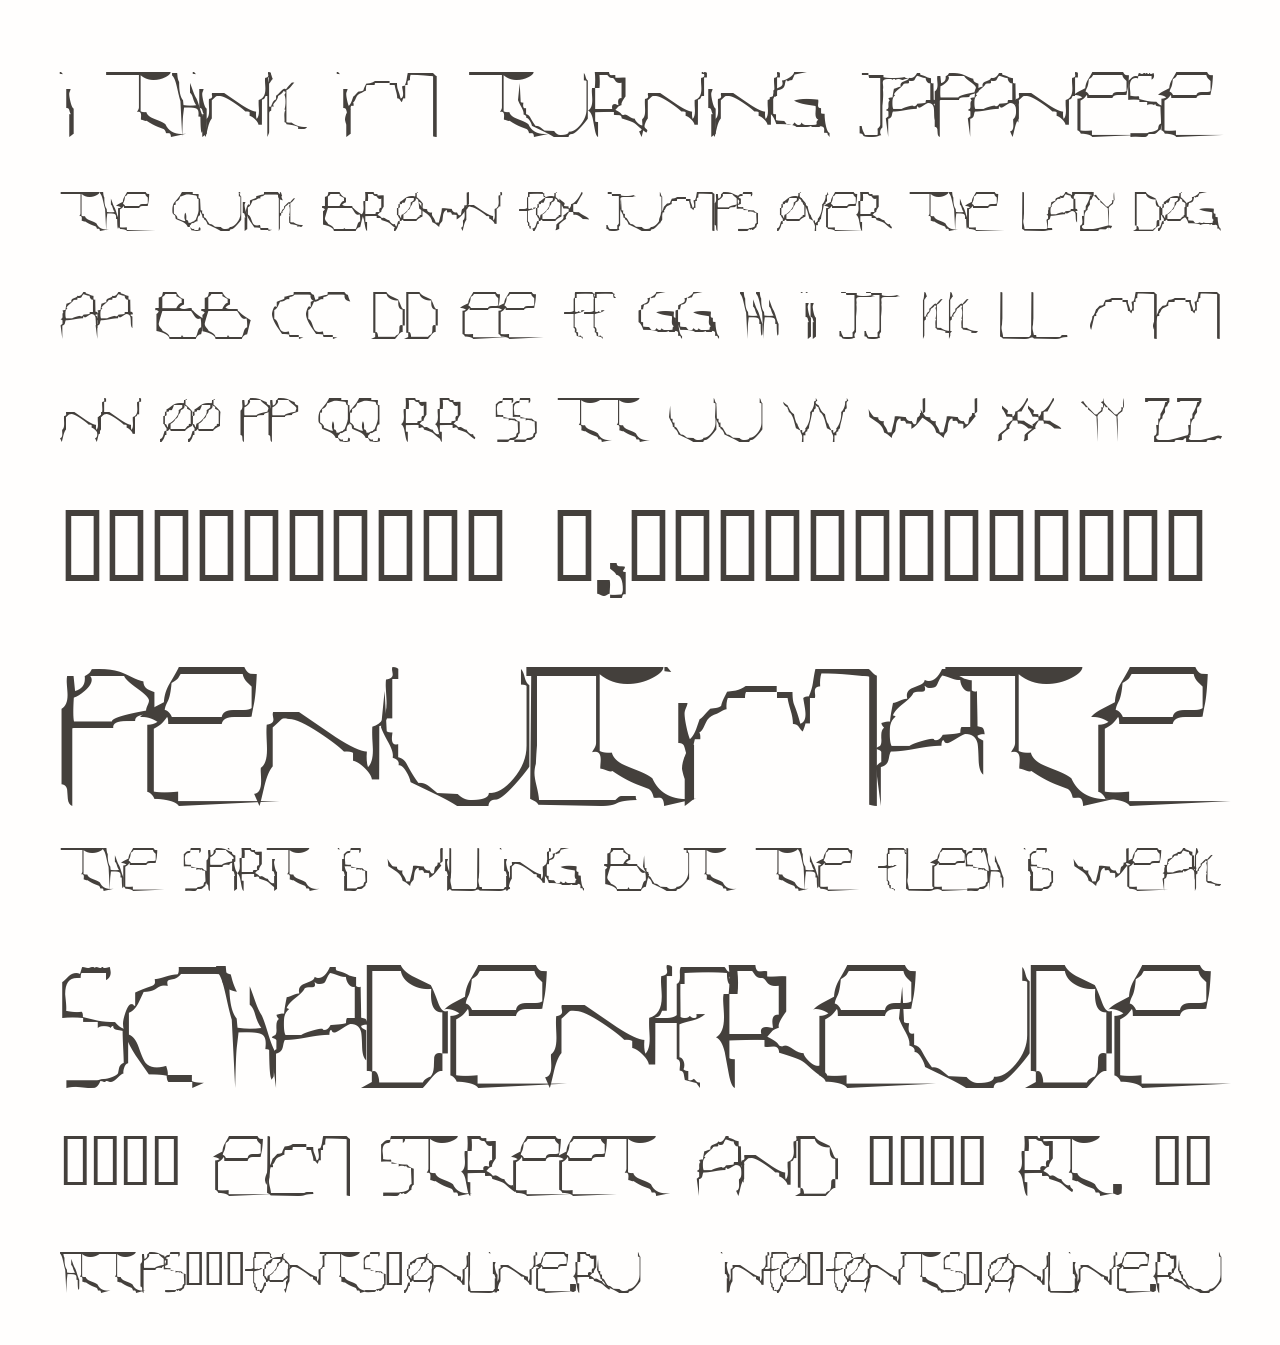 I THINK I'M TURNING JAPANESE
THE QUICK BROWN FOX JUMPS OVER THE LAZY DOG
AA BB CC DD EE FF GG HH II JJ KK LL MM
NN OO PP QQ RR SS TT UU VV WW XX YY ZZ
PENULTIMATE
THE SPIRIT IS WILLING BUT THE FLESH IS WEAK
SCHADENFREUDE
ELM STREET AND RT.